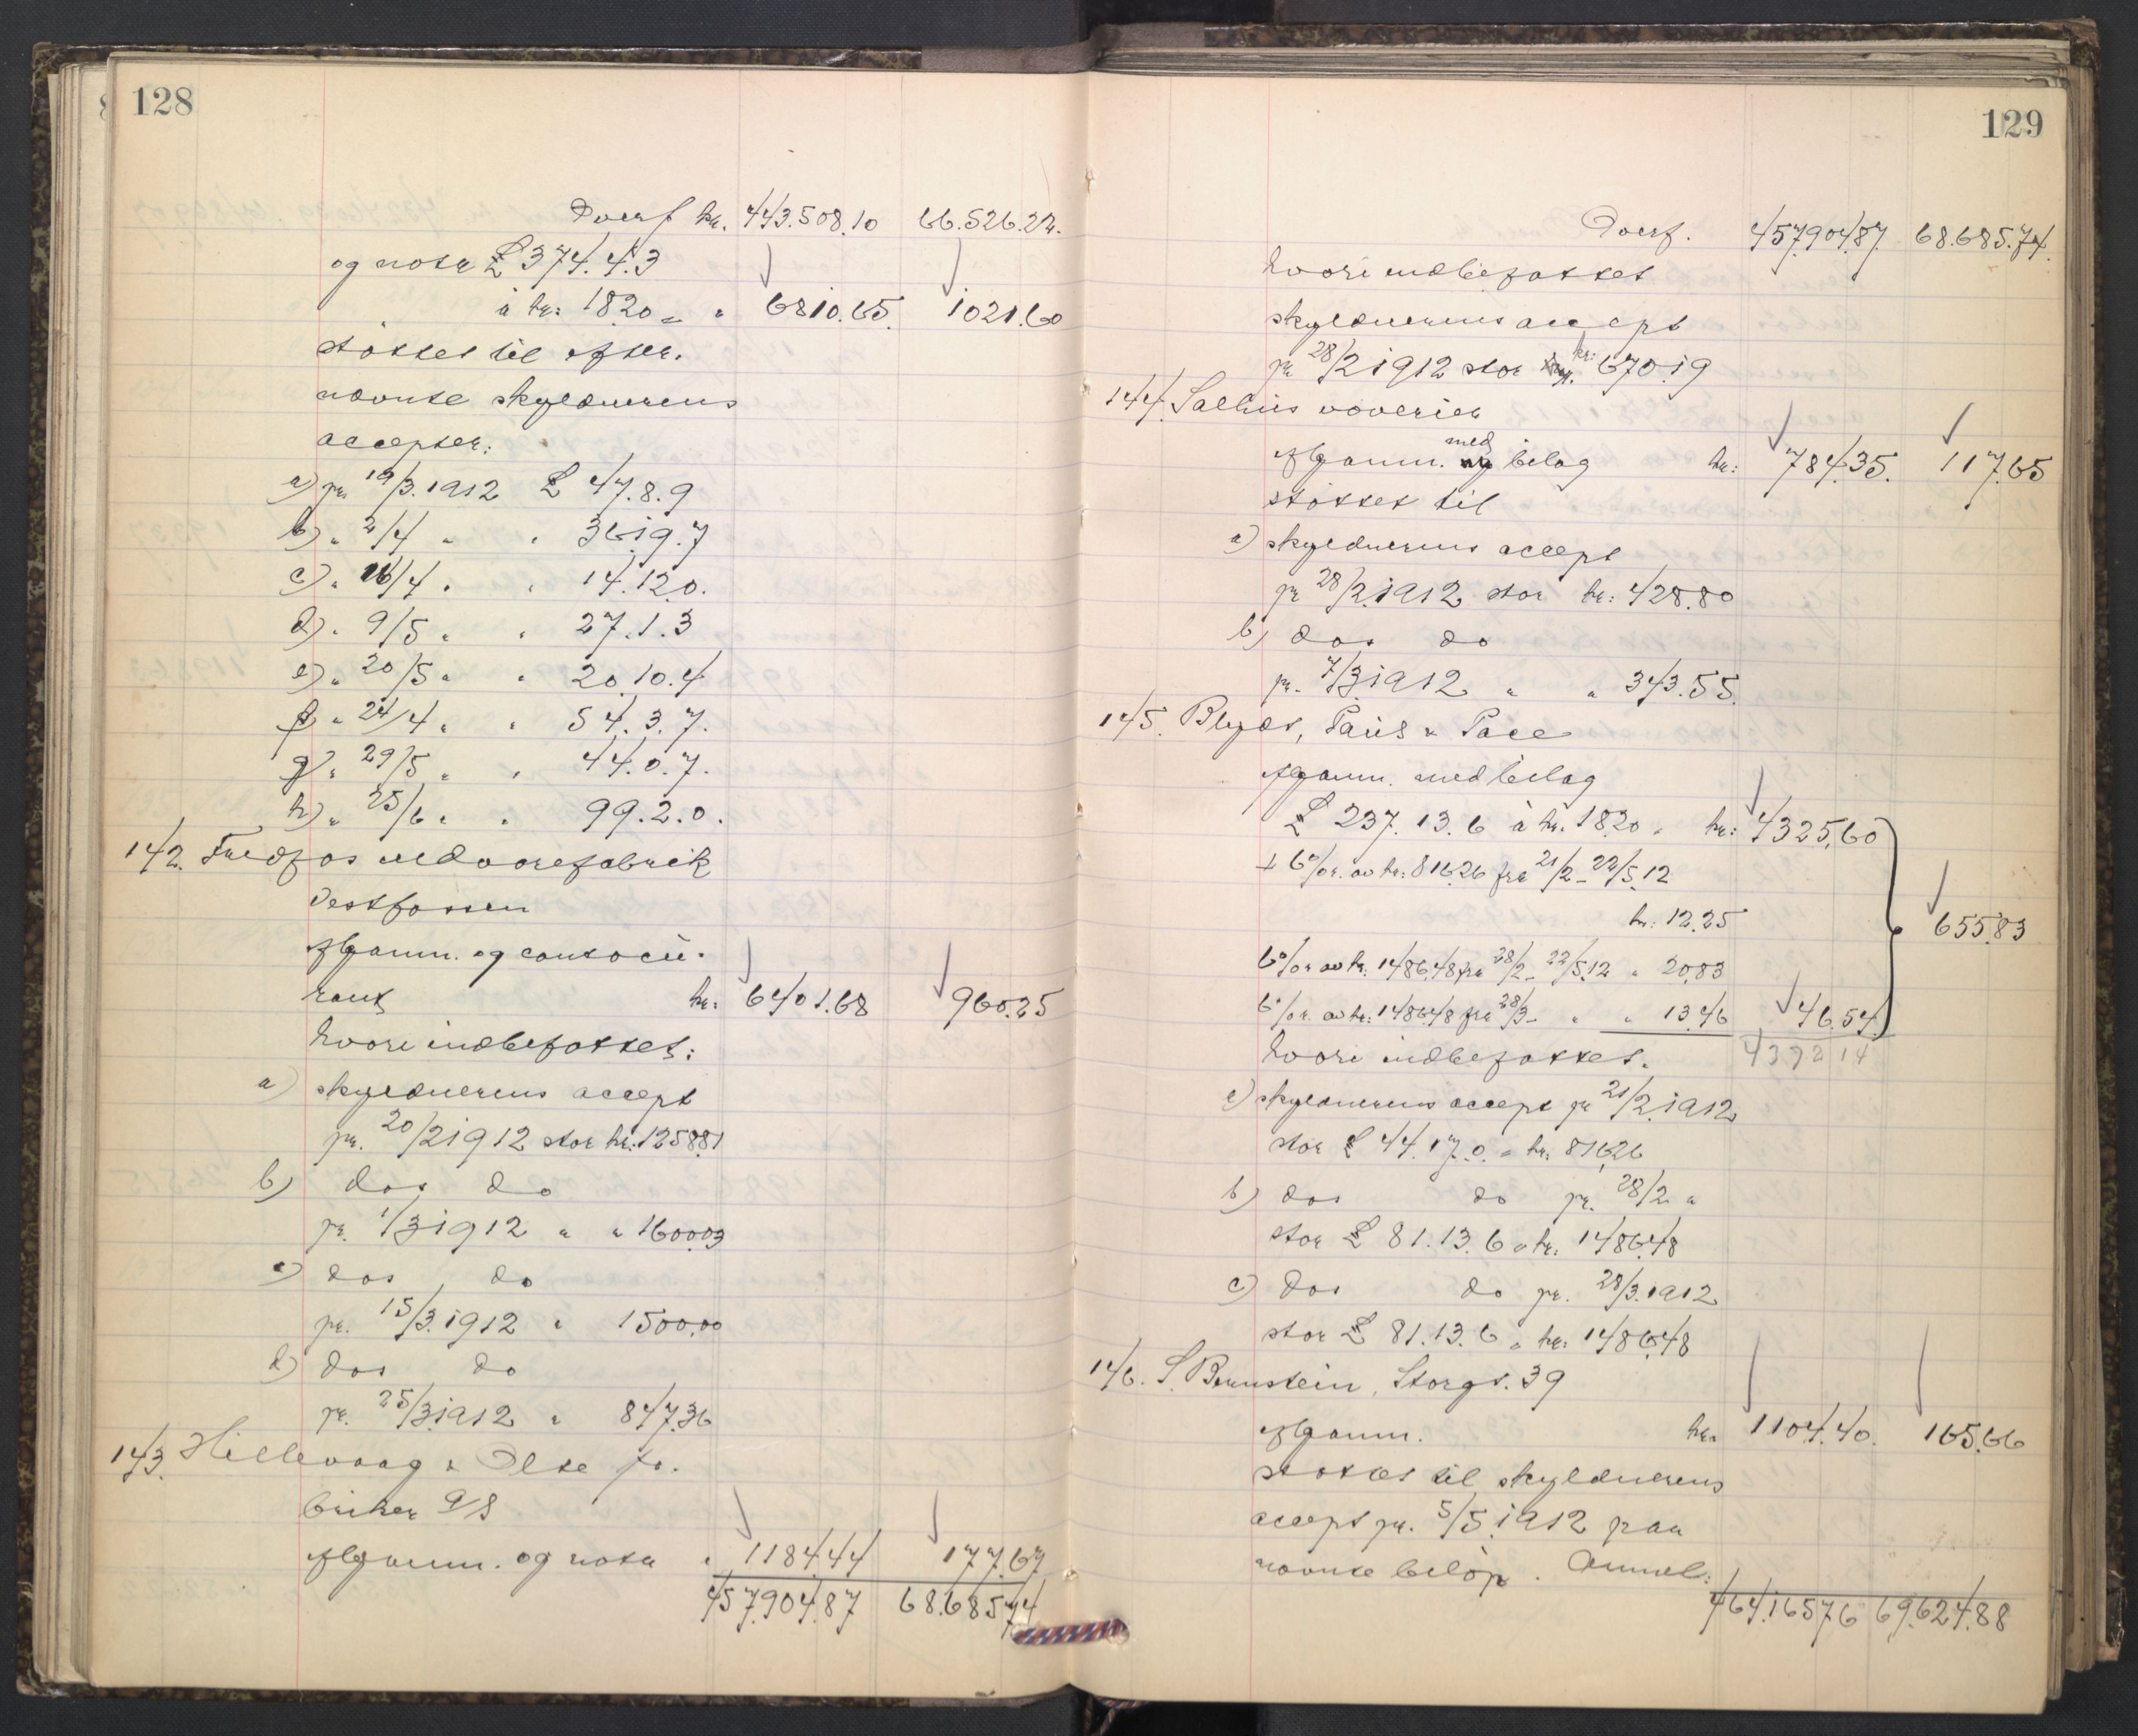 128
Overf kr. 443.508.10 66.526.22.
og nota £ 374.4.3
à kr: 18.20 = " 6810.65. 1021.60
støttet til efter-
nævnte skyldnerens
accepter:
a) pr. 19/3.1912 £ 47.8.9
b) " 2/4 " " 36.19.7
c) " 16/4 " " 14.12.0.
d) " 9/5 " " 27.1.3
e) " 20/5 " " 20.10.4
f) " 24/4 " " 54.3.7.
g) " 29/5 " " 44.0.7.
h) " 25/6 " " 99.2.0.
142. Fredfos uldvarefabrik
Vestfossen
afgann. og contocu-
rant kr: 6401.68 960.25
hvori indbefattet:
a) skyldnerens accept
pr. 20/2 1912 stor kr: 1258.81
b) das do
pr. 1/3 1912 " " 1600.03
c) das do
pr. 15/3.1912 " 1500.00
d) das do
pr. 25/3.1912 " 847.36
143. Hillevaag & Olse fa-
briker A/S
afgann. og nota " 1184.44 177.67
457.904.87 68.685.74
129
Overf. 457.904.87. 68.685.74.
hvori indbefattet
skyldnerens accept
pr 28/2 1912 stor kr: 670.19
144. Salhus væverier
afgann. med bilag kr: 784.35. 117.65
støttet til
a) skyldnerens accept
pr 28/2.1912 stor kr: 428.80
b) das do
pr. 7/3.1912 " " 343.55.
145. Blyds, Paris & Pace
afgann. med bilag
£ 237.13.6 à kr. 18.20 = kr: 4325.60
+ 6% r. av kr: 816.26 fra 21/2 - 22/5.12
kr: 12.25
655.83
6% r av kr: 1486.48 fra 28/2 - 22/5.12 " 20.83
6% r. av kr: 1486.48 fra 28/3 - " " 13.46 46.54
hvori indbefattet. 4372 14
a) skyldnerens accept pr 21/2.1912
stor £ 44.17.0. = kr: 816.26
b) das do pr. 28/2 "
stor £ 81.13.6 = kr: 1486.48
c) das do pr. 28/3.1912
stor £ 81.13.6 = kr: 1486.48
146. S. Bernstein, Storgt. 39
afgann. kr. 1104.40. 165.66
støttet til skyldnerens
accept pr. 5/5.1912 paa
nævnte beløp. Anmel:
464.165.76 69.624.88